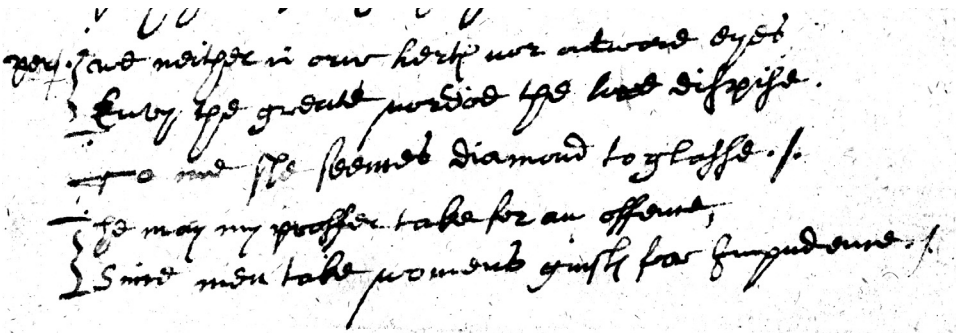 per: we neither in our hertes nor outward eyes
Envy the greate nor doe the lowe dispise.
To me she seemes diamond to glasse ./.
he may my proffer take for an offence,
Since men take womens guiftes for Impudence ./.